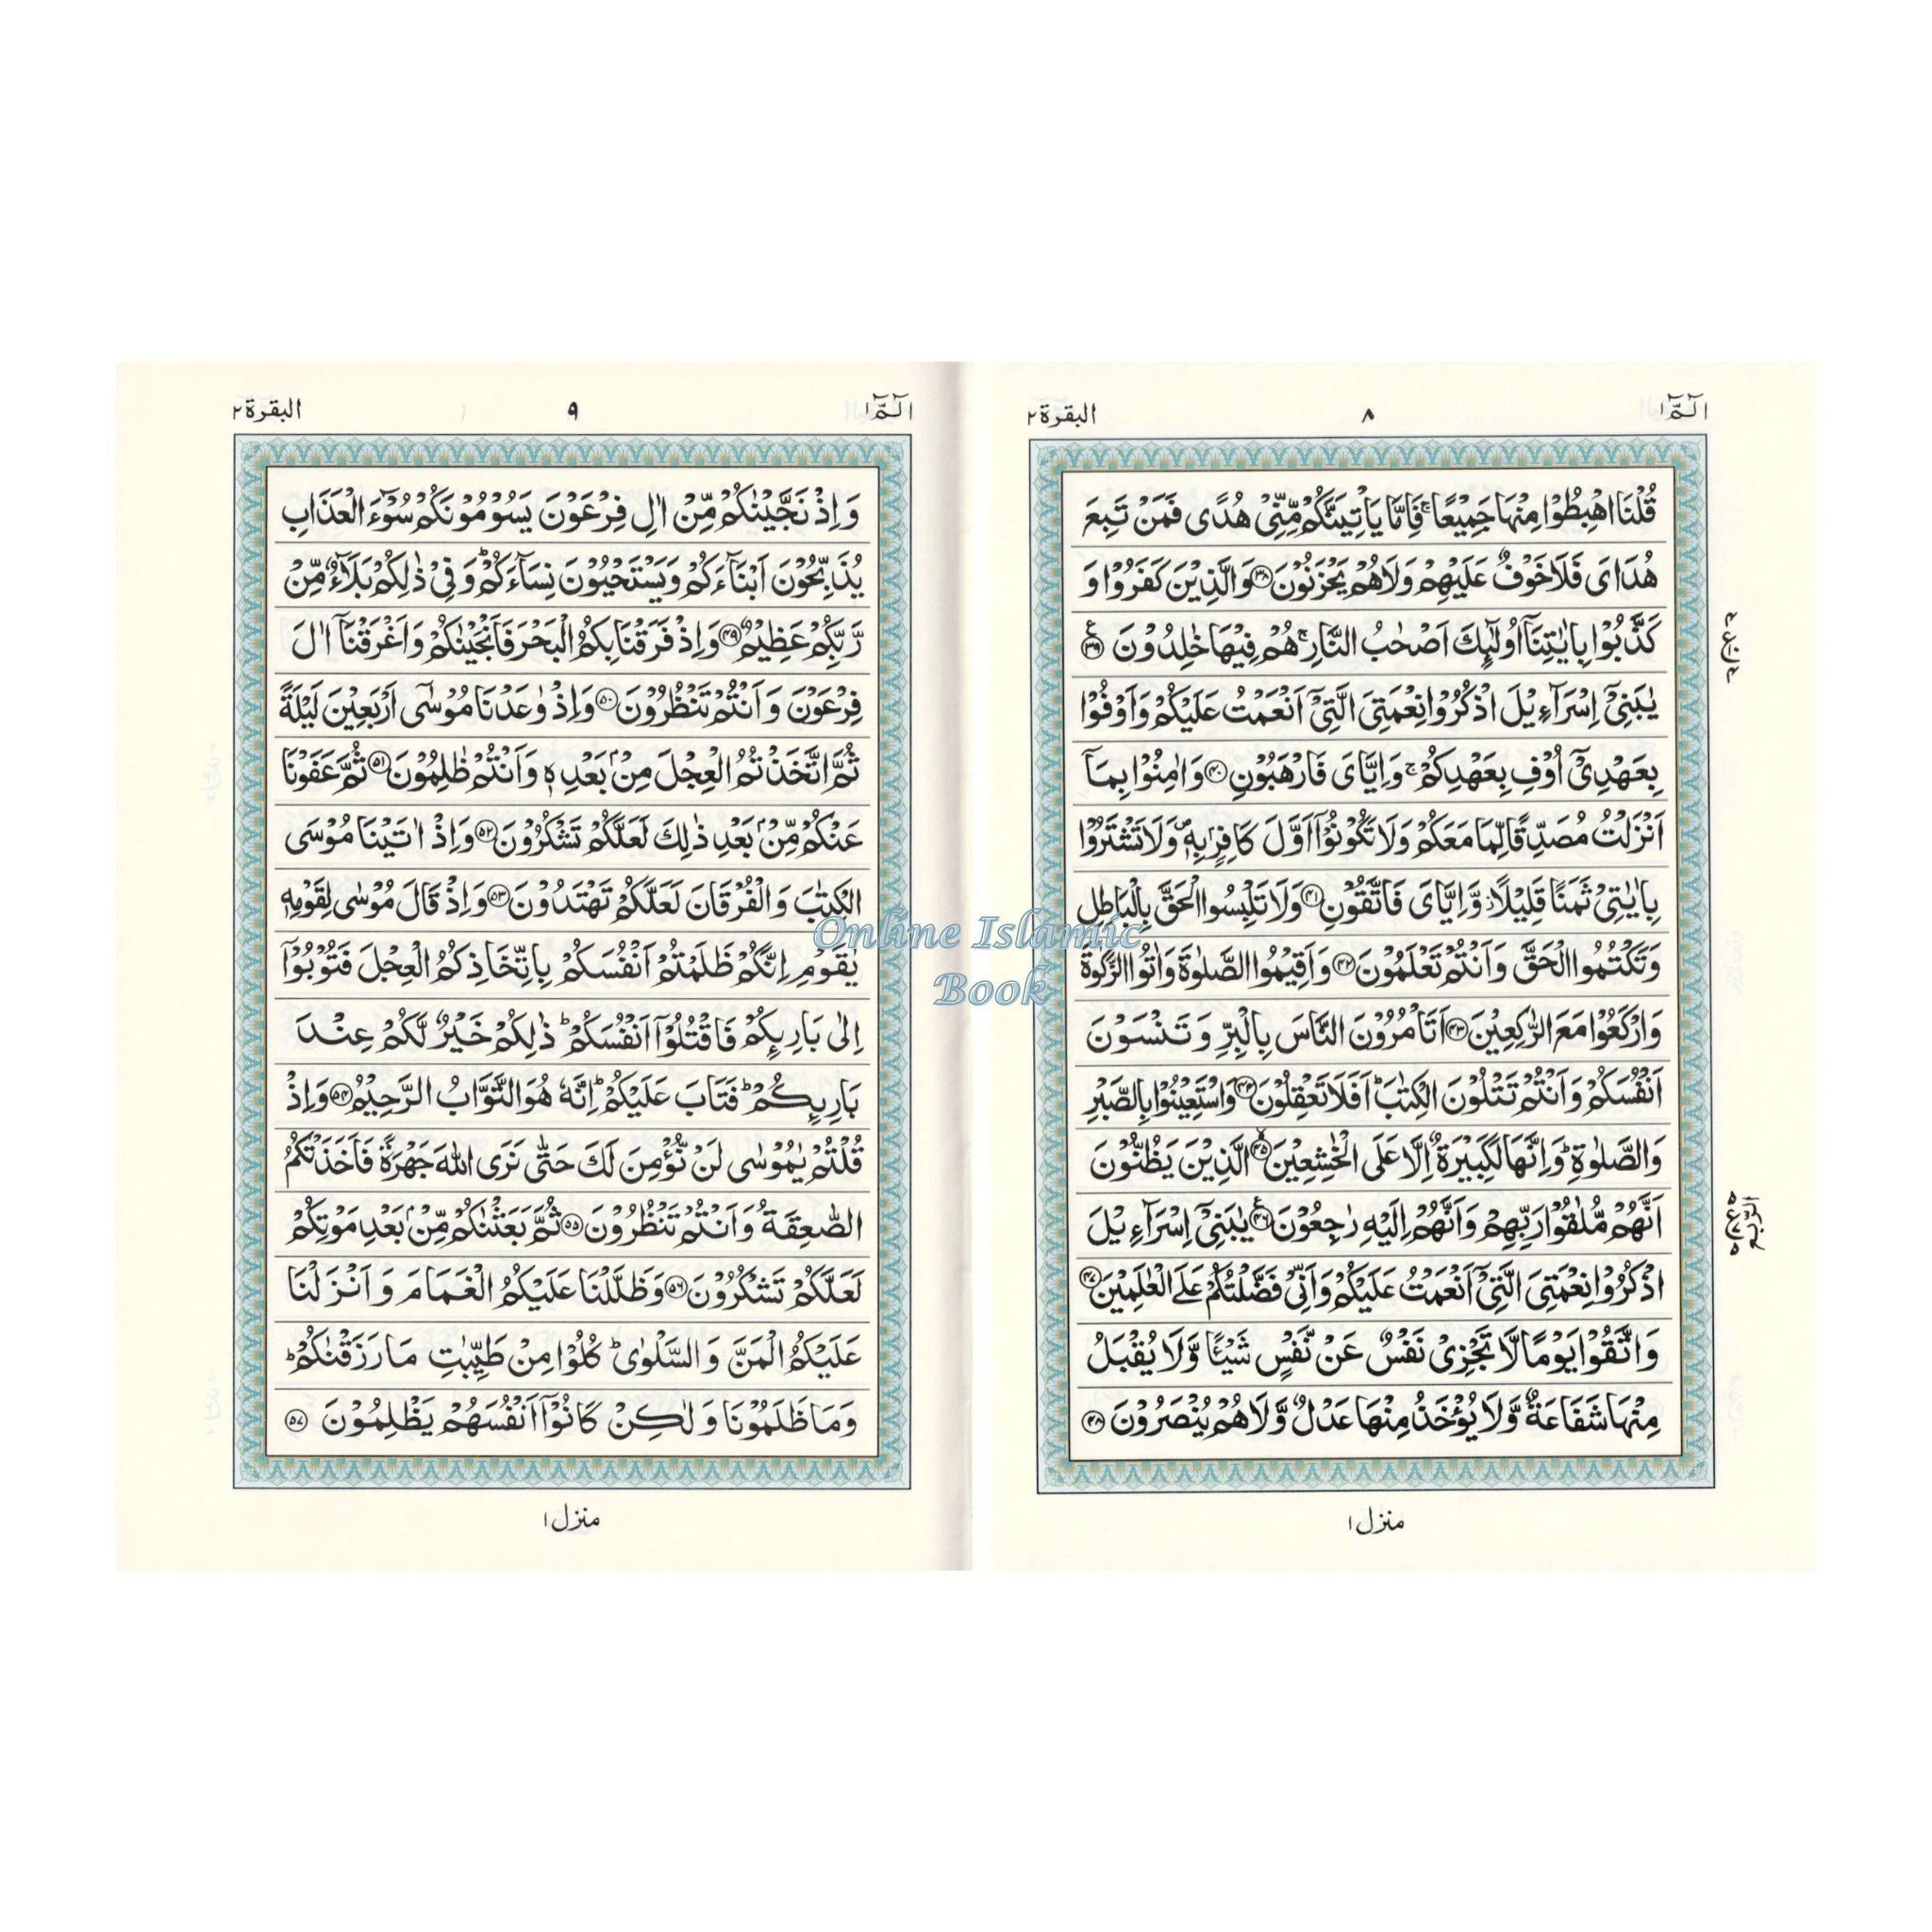 الٓمّٓ ١
٨
البقرة ٢
قُلْنَا اهْبِطُوْا مِنْهَا جَمِيْعًا ۚ فَاِمَّا يَاْتِيَنَّكُمْ مِّنِّيْ هُدًى فَمَنْ تَبِعَ
هُدَايَ فَلَا خَوْفٌ عَلَيْهِمْ وَلَا هُمْ يَحْزَنُوْنَ ٣٨ وَالَّذِيْنَ كَفَرُوْا وَ
كَذَّبُوْا بِاٰيٰتِنَآ اُولٰٓئِكَ اَصْحٰبُ النَّارِ ۚ هُمْ فِيْهَا خٰلِدُوْنَ ٣٩
يٰبَنِيْٓ اِسْرَآءِيْلَ اذْكُرُوْا نِعْمَتِيَ الَّتِيْٓ اَنْعَمْتُ عَلَيْكُمْ وَاَوْفُوْا
بِعَهْدِيْٓ اُوْفِ بِعَهْدِكُمْ ۚ وَاِيَّايَ فَارْهَبُوْنِ ٤٠ وَاٰمِنُوْا بِمَآ
اَنْزَلْتُ مُصَدِّقًا لِّمَا مَعَكُمْ وَلَا تَكُوْنُوْٓا اَوَّلَ كَافِرٍۢ بِهٖ ۪ وَلَا تَشْتَرُوْا
بِاٰيٰتِيْ ثَمَنًا قَلِيْلًا ۫ وَّاِيَّايَ فَاتَّقُوْنِ ٤١ وَلَا تَلْبِسُوا الْحَقَّ بِالْبَاطِلِ
وَتَكْتُمُوا الْحَقَّ وَاَنْتُمْ تَعْلَمُوْنَ ٤٢ وَاَقِيْمُوا الصَّلٰوةَ وَاٰتُوا الزَّكٰوةَ
وَارْكَعُوْا مَعَ الرّٰكِعِيْنَ ٤٣ اَتَاْمُرُوْنَ النَّاسَ بِالْبِرِّ وَتَنْسَوْنَ
اَنْفُسَكُمْ وَاَنْتُمْ تَتْلُوْنَ الْكِتٰبَ ؕ اَفَلَا تَعْقِلُوْنَ ٤٤ وَاسْتَعِيْنُوْا بِالصَّبْرِ
وَالصَّلٰوةِ ؕ وَاِنَّهَا لَكَبِيْرَةٌ اِلَّا عَلَى الْخٰشِعِيْنَ ٤٥ الَّذِيْنَ يَظُنُّوْنَ
اَنَّهُمْ مُّلٰقُوْا رَبِّهِمْ وَاَنَّهُمْ اِلَيْهِ رٰجِعُوْنَ ٤٦ يٰبَنِيْٓ اِسْرَآءِيْلَ
اذْكُرُوْا نِعْمَتِيَ الَّتِيْٓ اَنْعَمْتُ عَلَيْكُمْ وَاَنِّيْ فَضَّلْتُكُمْ عَلَى الْعٰلَمِيْنَ ٤٧
وَاتَّقُوْا يَوْمًا لَّا تَجْزِيْ نَفْسٌ عَنْ نَّفْسٍ شَيْـًٔا وَّلَا يُقْبَلُ
مِنْهَا شَفَاعَةٌ وَّلَا يُؤْخَذُ مِنْهَا عَدْلٌ وَّلَا هُمْ يُنْصَرُوْنَ ٤٨
ع
الربع
منزل ١
الٓمّٓ ١
٩
البقرة ٢
وَاِذْ نَجَّيْنٰكُمْ مِّنْ اٰلِ فِرْعَوْنَ يَسُوْمُوْنَكُمْ سُوْٓءَ الْعَذَابِ
يُذَبِّحُوْنَ اَبْنَآءَكُمْ وَيَسْتَحْيُوْنَ نِسَآءَكُمْ ؕ وَفِيْ ذٰلِكُمْ بَلَآءٌ مِّنْ
رَّبِّكُمْ عَظِيْمٌ ٤٩ وَاِذْ فَرَقْنَا بِكُمُ الْبَحْرَ فَاَنْجَيْنٰكُمْ وَاَغْرَقْنَآ اٰلَ
فِرْعَوْنَ وَاَنْتُمْ تَنْظُرُوْنَ ٥٠ وَاِذْ وٰعَدْنَا مُوْسٰٓى اَرْبَعِيْنَ لَيْلَةً
ثُمَّ اتَّخَذْتُمُ الْعِجْلَ مِنْۢ بَعْدِهٖ وَاَنْتُمْ ظٰلِمُوْنَ ٥١ ثُمَّ عَفَوْنَا
عَنْكُمْ مِّنْۢ بَعْدِ ذٰلِكَ لَعَلَّكُمْ تَشْكُرُوْنَ ٥٢ وَاِذْ اٰتَيْنَا مُوْسَى
الْكِتٰبَ وَالْفُرْقَانَ لَعَلَّكُمْ تَهْتَدُوْنَ ٥٣ وَاِذْ قَالَ مُوْسٰى لِقَوْمِهٖ
يٰقَوْمِ اِنَّكُمْ ظَلَمْتُمْ اَنْفُسَكُمْ بِاتِّخَاذِكُمُ الْعِجْلَ فَتُوْبُوْٓا
اِلٰى بَارِئِكُمْ فَاقْتُلُوْٓا اَنْفُسَكُمْ ؕ ذٰلِكُمْ خَيْرٌ لَّكُمْ عِنْدَ
بَارِئِكُمْ ؕ فَتَابَ عَلَيْكُمْ ؕ اِنَّهٗ هُوَ التَّوَّابُ الرَّحِيْمُ ٥٤ وَاِذْ
قُلْتُمْ يٰمُوْسٰى لَنْ نُّؤْمِنَ لَكَ حَتّٰى نَرَى اللّٰهَ جَهْرَةً فَاَخَذَتْكُمُ
الصّٰعِقَةُ وَاَنْتُمْ تَنْظُرُوْنَ ٥٥ ثُمَّ بَعَثْنٰكُمْ مِّنْۢ بَعْدِ مَوْتِكُمْ
لَعَلَّكُمْ تَشْكُرُوْنَ ٥٦ وَظَلَّلْنَا عَلَيْكُمُ الْغَمَامَ وَاَنْزَلْنَا
عَلَيْكُمُ الْمَنَّ وَالسَّلْوٰى ؕ كُلُوْا مِنْ طَيِّبٰتِ مَا رَزَقْنٰكُمْ ؕ
وَمَا ظَلَمُوْنَا وَلٰكِنْ كَانُوْٓا اَنْفُسَهُمْ يَظْلِمُوْنَ ٥٧
منزل ١
Online Islamic
Book